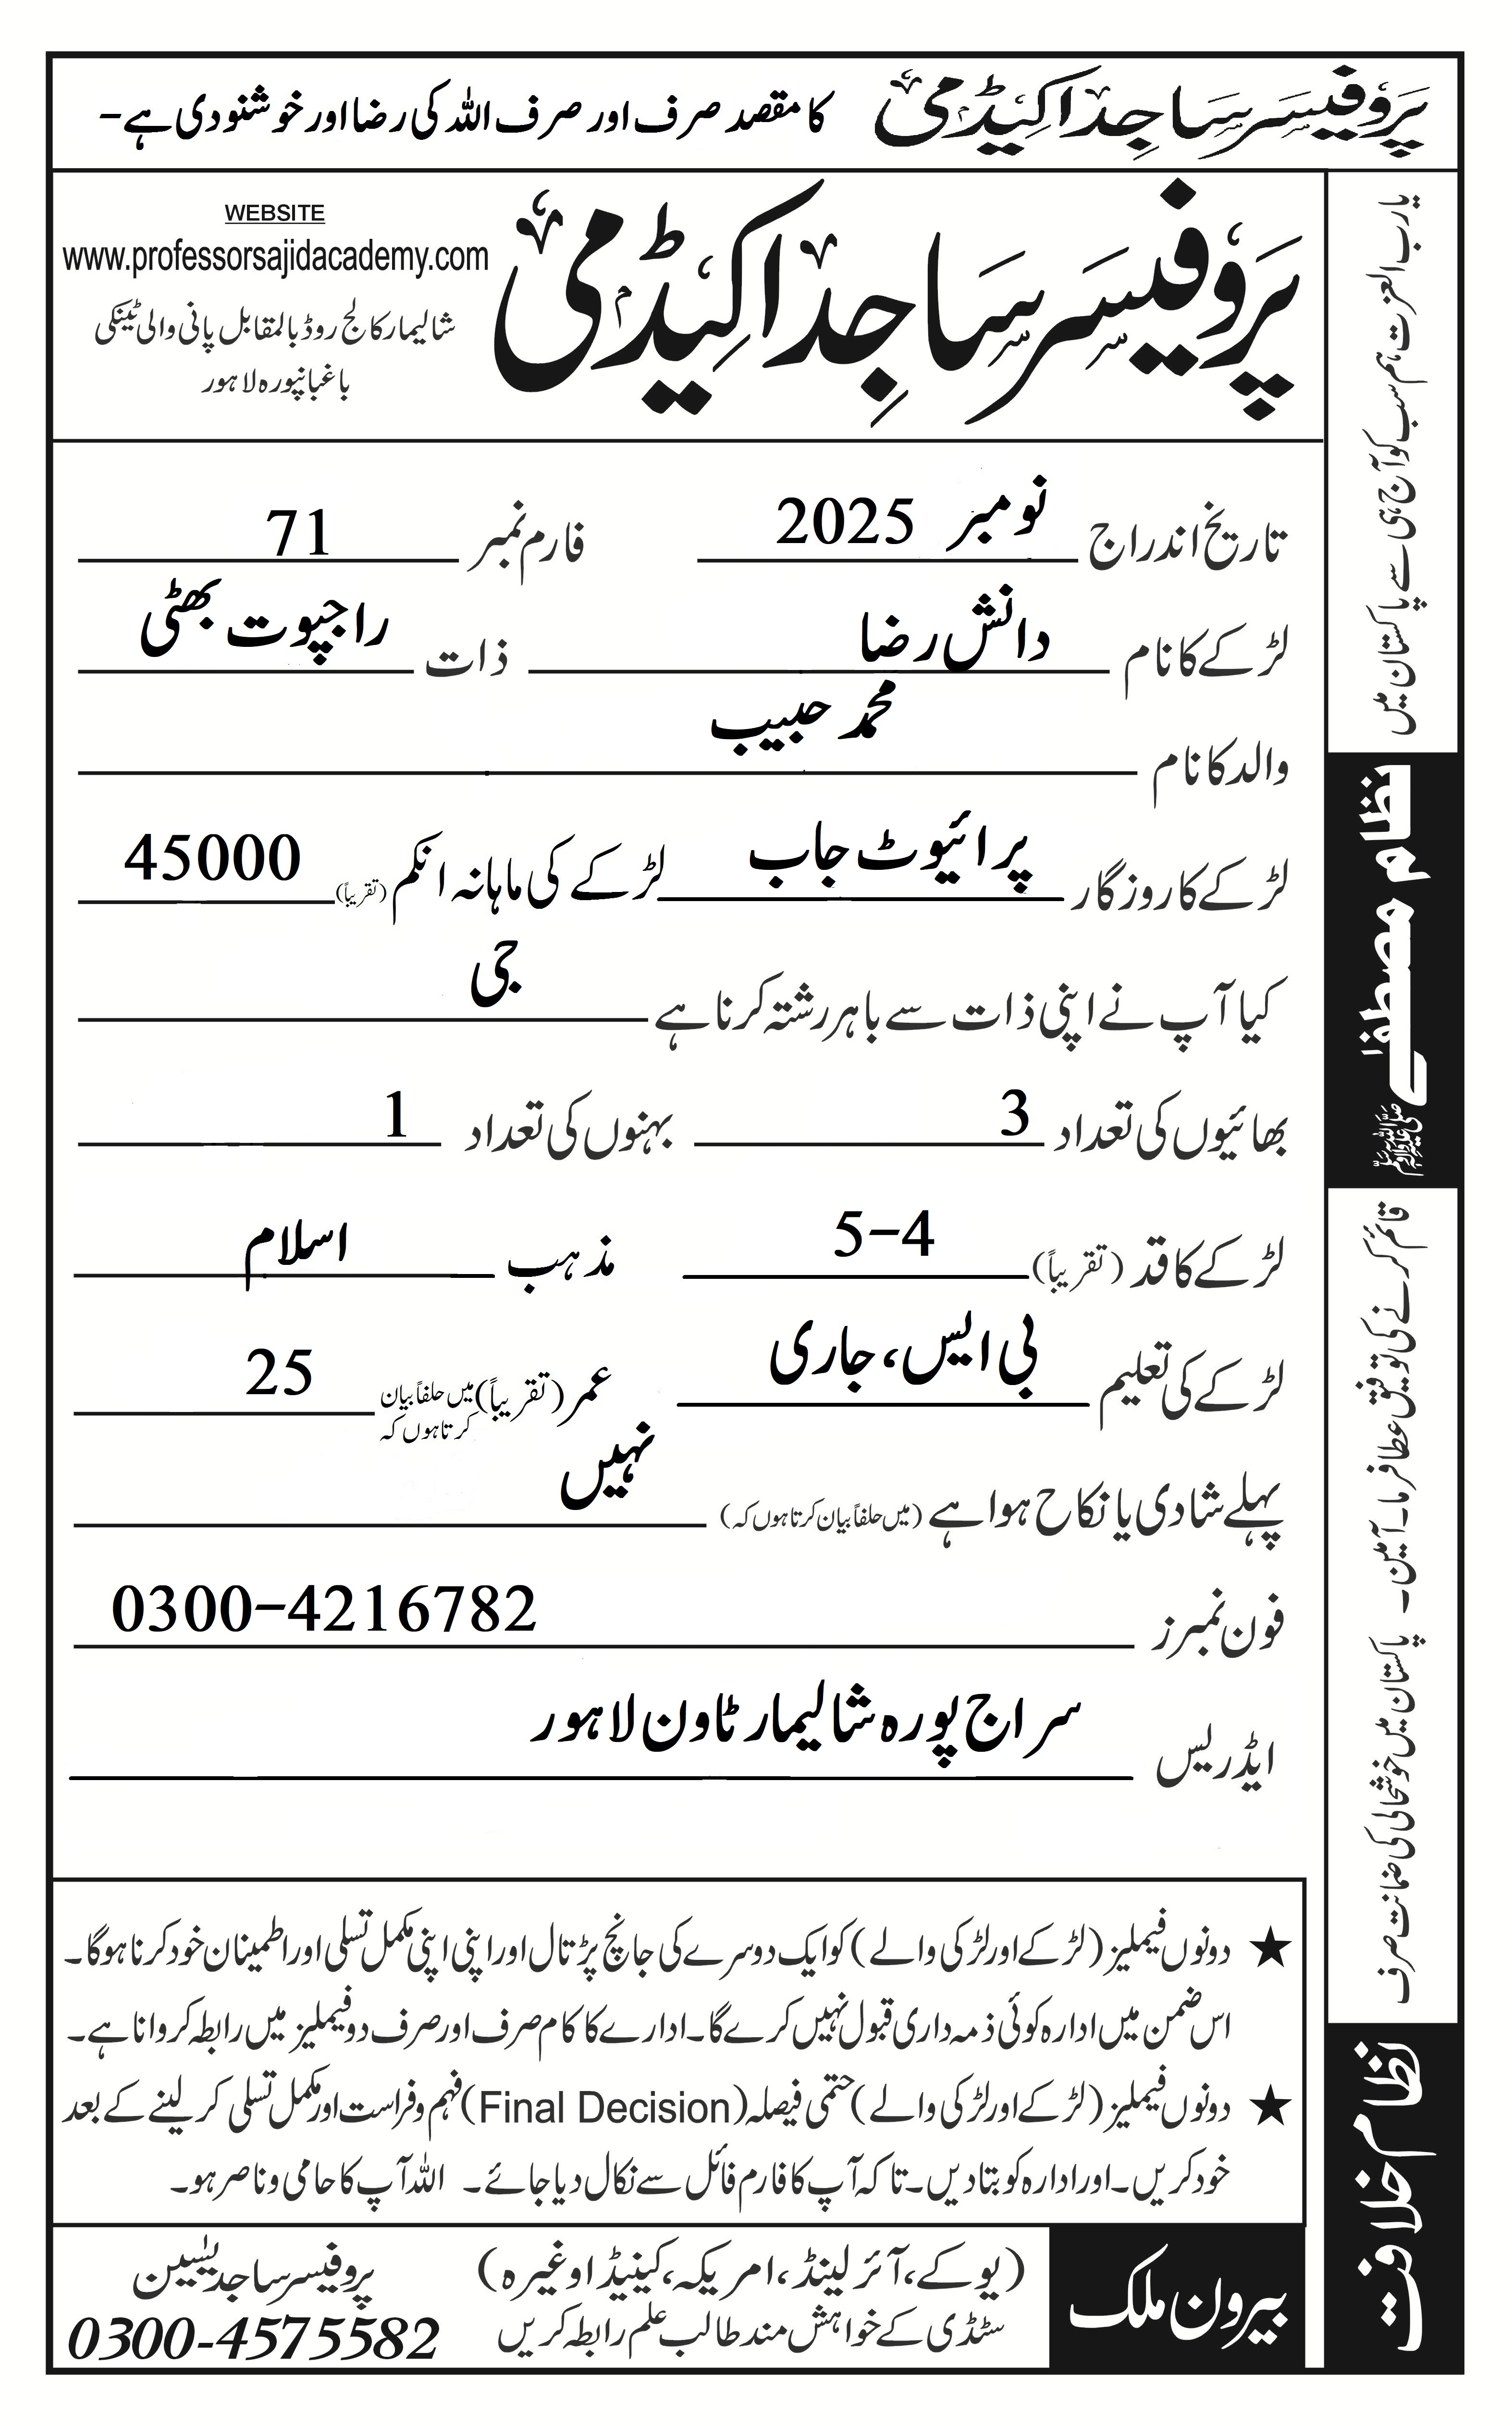 پروفیسر ساجد اکیڈمی کا مقصد صرف اور صرف اللہ کی رضا اور خوشنودی ہے-
پروفیسر ساجد اکیڈمی
WEBSITE
www.professorsajidacademy.com
شالیمار کالج روڈ بالمقابل پانی والی ٹینکی
باغبانپورہ لاہور
تاریخ اندراج نومبر 2025 فارم نمبر 71
لڑکے کا نام دانش رضا ذات راجپوت بھٹی
والد کا نام محمد حبیب
لڑکے کا روزگار پرائیوٹ جاب لڑکے کی ماہانہ انکم (تقریباً) 45000
کیا آپ نے اپنی ذات سے باہر رشتہ کرنا ہے جی
بھائیوں کی تعداد 3 بہنوں کی تعداد 1
لڑکے کا قد (تقریباً) 5-4 مذہب اسلام
لڑکے کی تعلیم بی ایس، جاری عمر (تقریباً) میں حلفاً بیان کرتا ہوں کہ 25
پہلے شادی یا نکاح ہوا ہے (میں حلفاً بیان کرتا ہوں کہ) نہیں
فون نمبرز 0300-4216782
ایڈریس سراج پورہ شالیمار ٹاون لاہور
★ دونوں فیملیز (لڑکے اور لڑکی والے) کو ایک دوسرے کی جانچ پڑتال اور اپنی اپنی مکمل تسلی اور اطمینان خود کرنا ہوگا۔
اس ضمن میں ادارہ کوئی ذمہ داری قبول نہیں کرے گا۔ ادارے کا کام صرف اور صرف دو فیملیز میں رابطہ کروانا ہے۔
★ دونوں فیملیز (لڑکے اور لڑکی والے) حتمی فیصلہ (Final Decision) فہم و فراست اور مکمل تسلی کر لینے کے بعد
خود کریں۔ اور ادارہ کو بتا دیں۔ تاکہ آپ کا فارم فائل سے نکال دیا جائے۔ اللہ آپ کا حامی و ناصر ہو۔
بیرون ملک
(یو کے، آئر لینڈ، امریکہ، کینیڈا وغیرہ)
سٹڈی کے خواہش مند طالب علم رابطہ کریں
پروفیسر ساجد یٰسیین
0300-4575582
یا رب العزت ہم سب کو آج ہی سے پاکستان میں
نظام مصطفےٰ صلی اللہ علیہ وآلہ وسلم
قائم کرنے کی توفیق عطا فرما۔ آمین۔ پاکستان میں خوشحالی کی ضمانت صرف
نظام خلافت